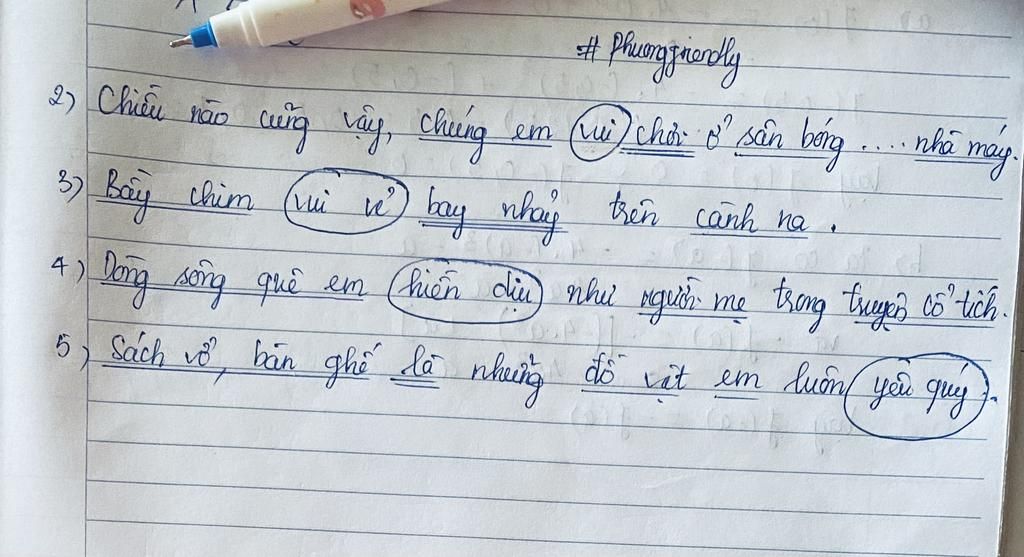 # Phuongfriendly
2) Chiều nào cũng vậy, chúng em vui chơi ở sân bóng .... nhà máy.
3) Bầy chim vui vẻ bay nhảy trên cành na.
4) Dòng sông quê em hiền dịu như người mẹ trong truyện cổ tích.
5) Sách vở, bàn ghế là những đồ vật em luôn yêu quý.